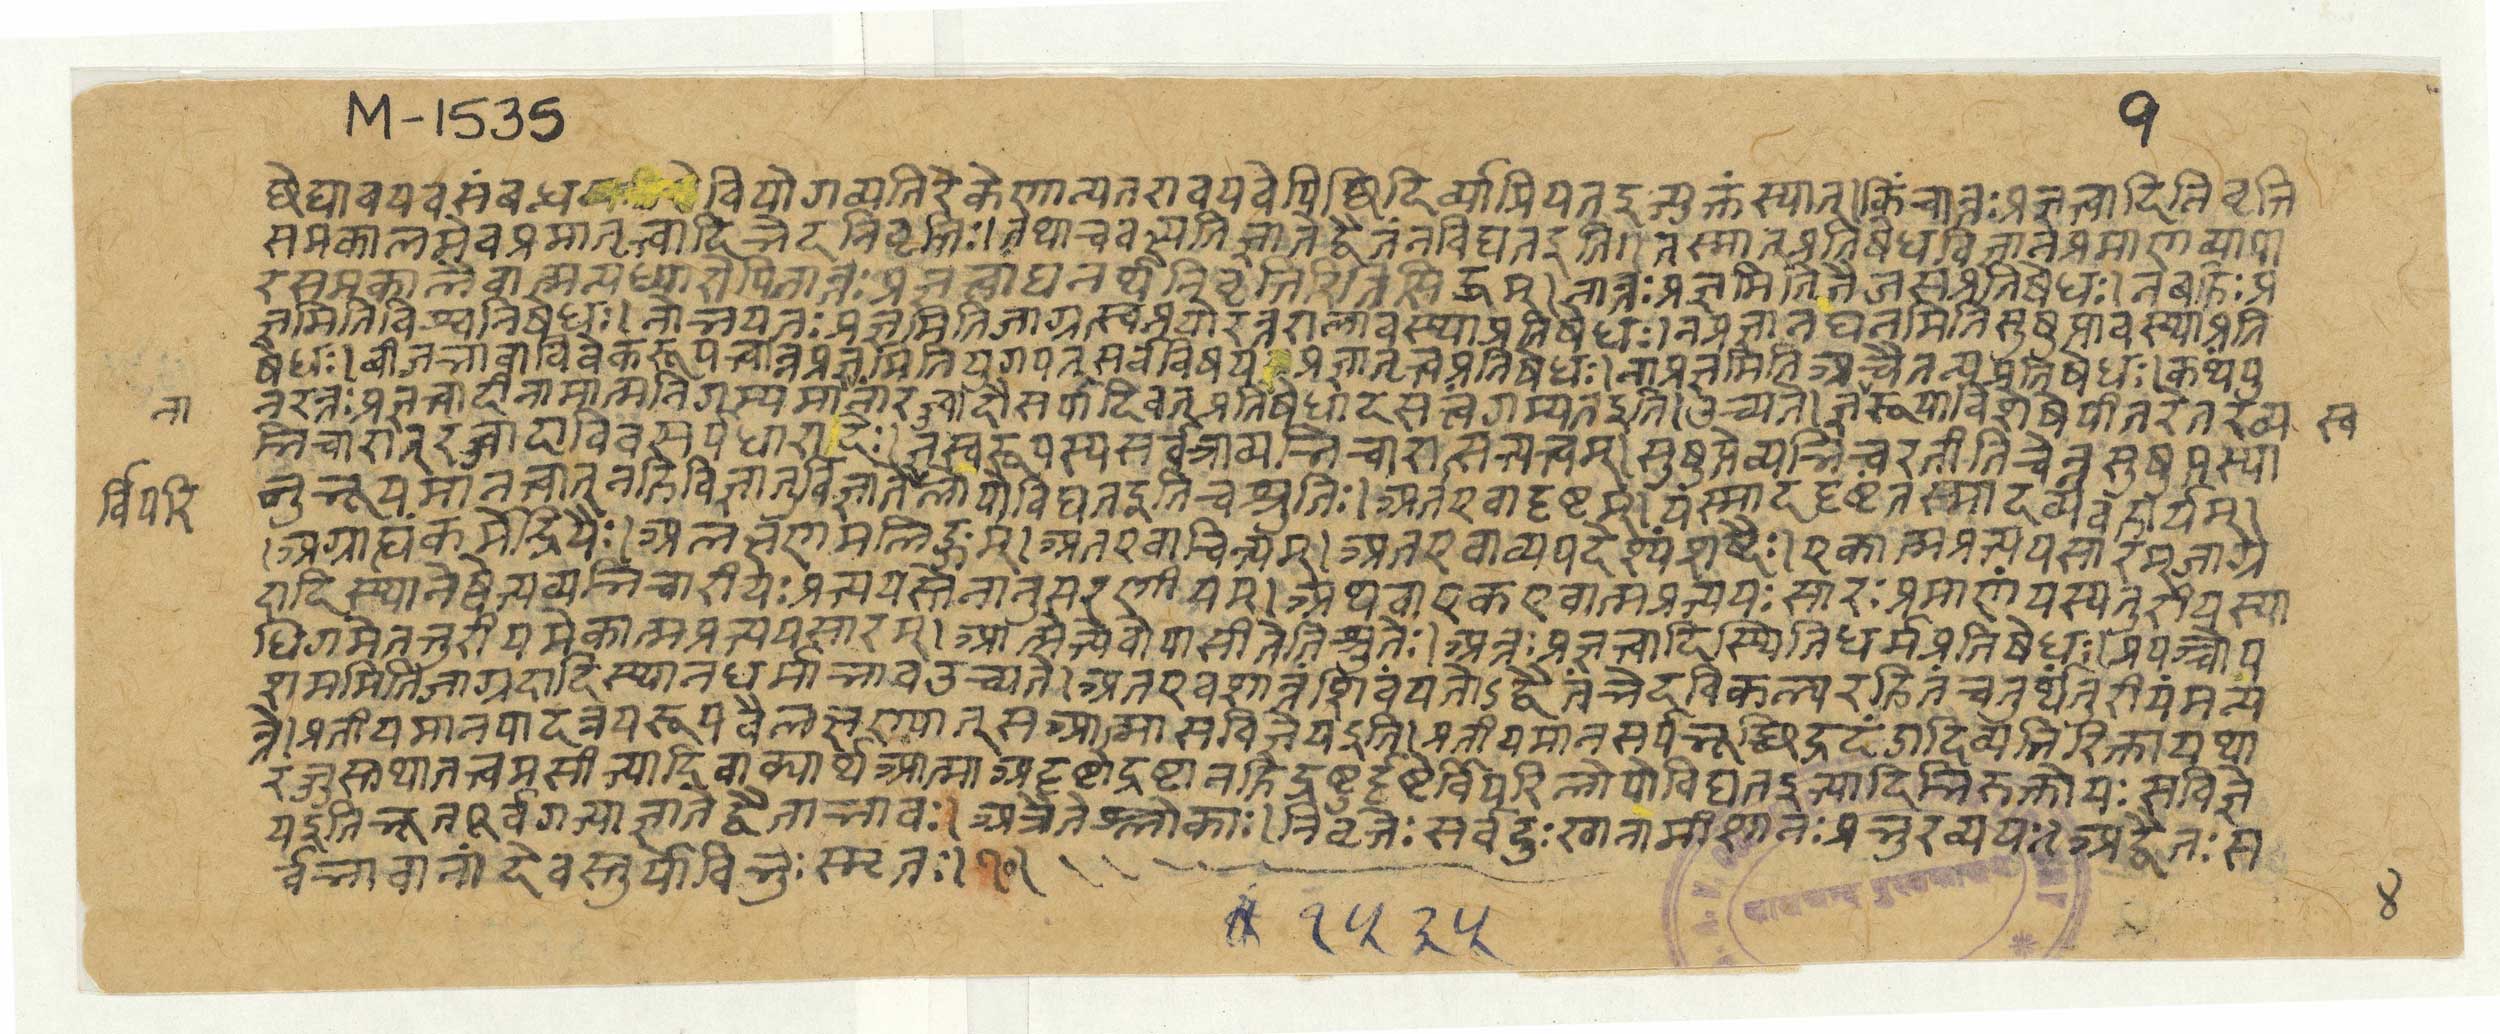 M-1535
१
छेद्यावयवसंबन्धवियोगव्यतिरेकेणान्यतरावयवेपिछिदिर्व्याप्रियतइत्युक्तंस्यात्।किंचान्तःप्रज्ञत्वादिनिवृत्ति
समकालमेवप्रमातृत्वादिभेदनिवृत्तिः।तथाचवक्ष्यतिज्ञातेद्वैतंनविद्यतइति।तस्मात्प्रतिषेधविज्ञानप्रमाणव्यापा
रसमकालैवात्मन्यध्यारोपितान्तःप्रज्ञत्वाद्यनर्थनिवृत्तिरितिसिद्धम्।नान्तःप्रज्ञमितितैजसप्रतिषेधः।नबहिःप्र
ज्ञमितिविश्वनिषेधः।नोभयतःप्रज्ञमितिजाग्रत्स्वप्नयोरन्तरालावस्थाप्रतिषेधः।नप्रज्ञानघनमितिसुषुप्तावस्थाप्रति
षेधः।बीजभावाविवेकरूपत्वान्नप्रज्ञमितियुगपत्सर्वविषयप्रज्ञातृत्वप्रतिषेधः।नाप्रज्ञमितिअचैतन्यप्रतिषेधः।कथंपु
नरन्तःप्रज्ञत्वादीनामात्मनिगम्यमानानांरज्ज्वादौसर्पादिवत्प्रतिषेधादसत्त्वगम्यतइति।उच्यते।ज्ञस्वरूपाविशेषेपीतरेतरव्य
भिचारात्रज्ज्वादाविवसर्पधारादेः।ज्ञस्वरूपस्यसर्वत्राव्यभिचारात्सत्यत्वम्।सुषुप्तेव्यभिचरतीतिचेन्नसुषुप्तस्या
नुभूयमानत्वात्नहिविज्ञातुर्विज्ञातेलोपोविद्यतइतिचश्रुतिः।अतएवादृष्टम्।यस्माददृष्टंतस्मादव्यवहार्यम्।
।अग्राह्यंकर्मेंद्रियैः।अलक्षणमलिङ्गम्।अतएवाचिन्त्यम्।अतएवाव्यपदेश्यंशब्दैः।एकात्मप्रत्ययसारम्जाग्र
दादिस्थानेष्वेत्यव्यभिचारीयःप्रत्ययस्तेनानुसरणीयम्।अथवाएकएवात्मप्रत्ययःसारःप्रमाणंयस्यतुरीयस्या
धिगमेतत्तुरीयमेकात्मप्रत्ययसारम्।आत्मेत्येवोपासीतेतिश्रुतेः।अन्तःप्रज्ञत्वादिस्थितिधर्मप्रतिषेधः।प्रपञ्चोप
शममितिजाग्रदादिस्थानधर्माभावउच्यते।अतएवशान्तंशिवंयतोऽद्वैतंभेदविकल्परहितंचतुर्थंतुरीयंमन्य
न्ते।प्रतीयमानपादत्रयरूपवैलक्षण्यात्सआत्मासविज्ञेयइति।प्रतीयमानसर्पभूछिद्रदंडादिव्यतिरिक्तायथा
रज्जुस्तथातत्त्वमसीत्यादिवाक्यार्थआत्माअदृष्टोद्रष्टानहिद्रष्टुर्दृष्टेर्विपरिलोपोविद्यतइत्यादिभिरुक्तोयःसविज्ञे
यइतिभूतपूर्वगत्याज्ञातेद्वैताभावः।अत्रैतेश्लोकाः।निवृत्तेःसर्वदुःखानामीशानःप्रभुरव्ययः।अद्वैतःस
र्वभावानांदेवस्तुर्योविभुःस्मृतः।१०।
ना
स्व
र्विपरि
१५३५
४